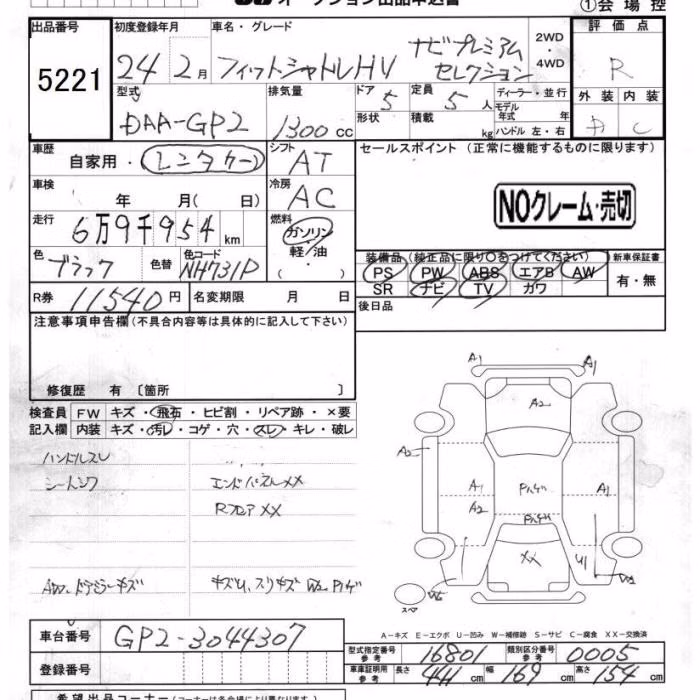 オークション出品申込書
①会場控
出品番号 初度登録年月 車名・グレード 2WD・4WD 評価点
5221 24年 2月 フィットシャトルHV ナビプレミアムセレクション R
型式 排気量 ドア 5 定員 5人 ディーラー・並行 外装 内装
DAA-GP2 1300cc 形状 積載 kg モデル年式 年 ハンドル 左・右 C
車歴 自家用・レンタカー シフト AT セールスポイント (正常に機能するものに限ります)
車検 年 月(日) 冷房 AC NOクレーム・売切
走行 6万9千954km 燃料 ガソリン・軽/油・( )
色 ブラック 色替 色コード NH731P 装備品 (純正品に限り○をつけてください) 新車保証書
PS PW ABS エアB AW 有・無
SR ナビ TV カワ
R券 11540円 名変期限 月 日 後日品
注意事項申告欄 (不具合内容等は具体的に記入して下さい)
修復歴 有 〔箇所 〕
検査員 FW キズ・飛石・ヒビ割・リペア跡・×要
記入欄 内装 キズ・汚レ・コゲ・穴・スレ・キレ・破レ
ハンドルスレ
シートシワ エンドパネルXX
RフロアXX
AW、ドアミラーキズ キズU、スリキズ W2 Pハゲ
A1 A1
A2
A2
A1 Pハゲ A1
A2 Pハゲ
XX U1
W2 W3
スペア
A−キズ E−エクボ U−凹み W−補修跡 S−サビ C−腐食 XX−交換済
車台番号 GP2-3044307
型式指定番号 参考 16801 類別区分番号 参考 0005
登録番号 車庫証明用 参考 長さ 441cm 幅 169cm 高さ 154cm
希望出品コーナー (コーナーは各会場により異なります)